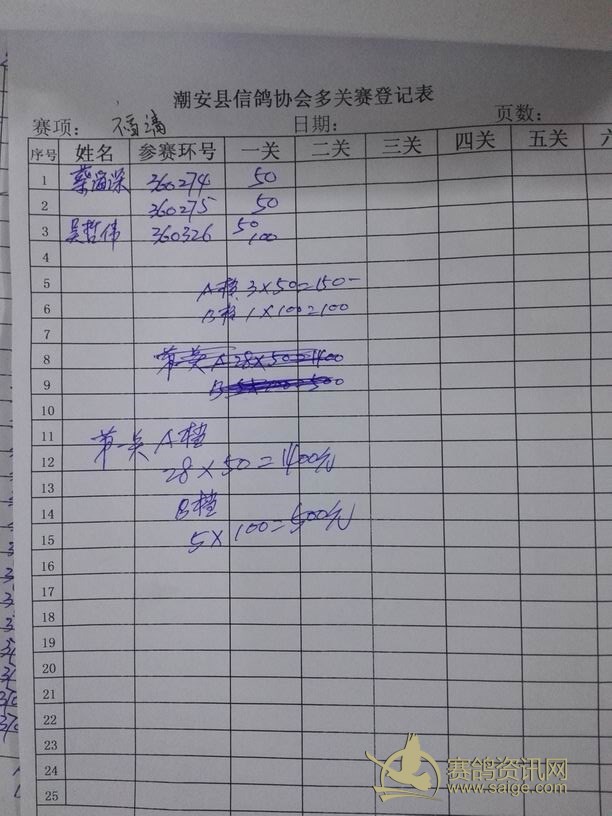 潮安县信鸽协会多关赛登记表
赛项： 日期： 页数：
序号 姓名 参赛环号 一关 二关 三关 四关 五关 六
1 360274 50
2 360275 50
3 吴哲伟 360326 50 100
4
5 A档 3×50=150-
6 B档 1×100=100
7
8 第一关 A 28×50=1400
9 B 5×100=500
10
11 第一关 A档
12 28×50=1400元
13
14 B档
15 5×100=500元
16
17
18
19
20
21
22
23
24
25
赛鸽资讯网
www.saige.com